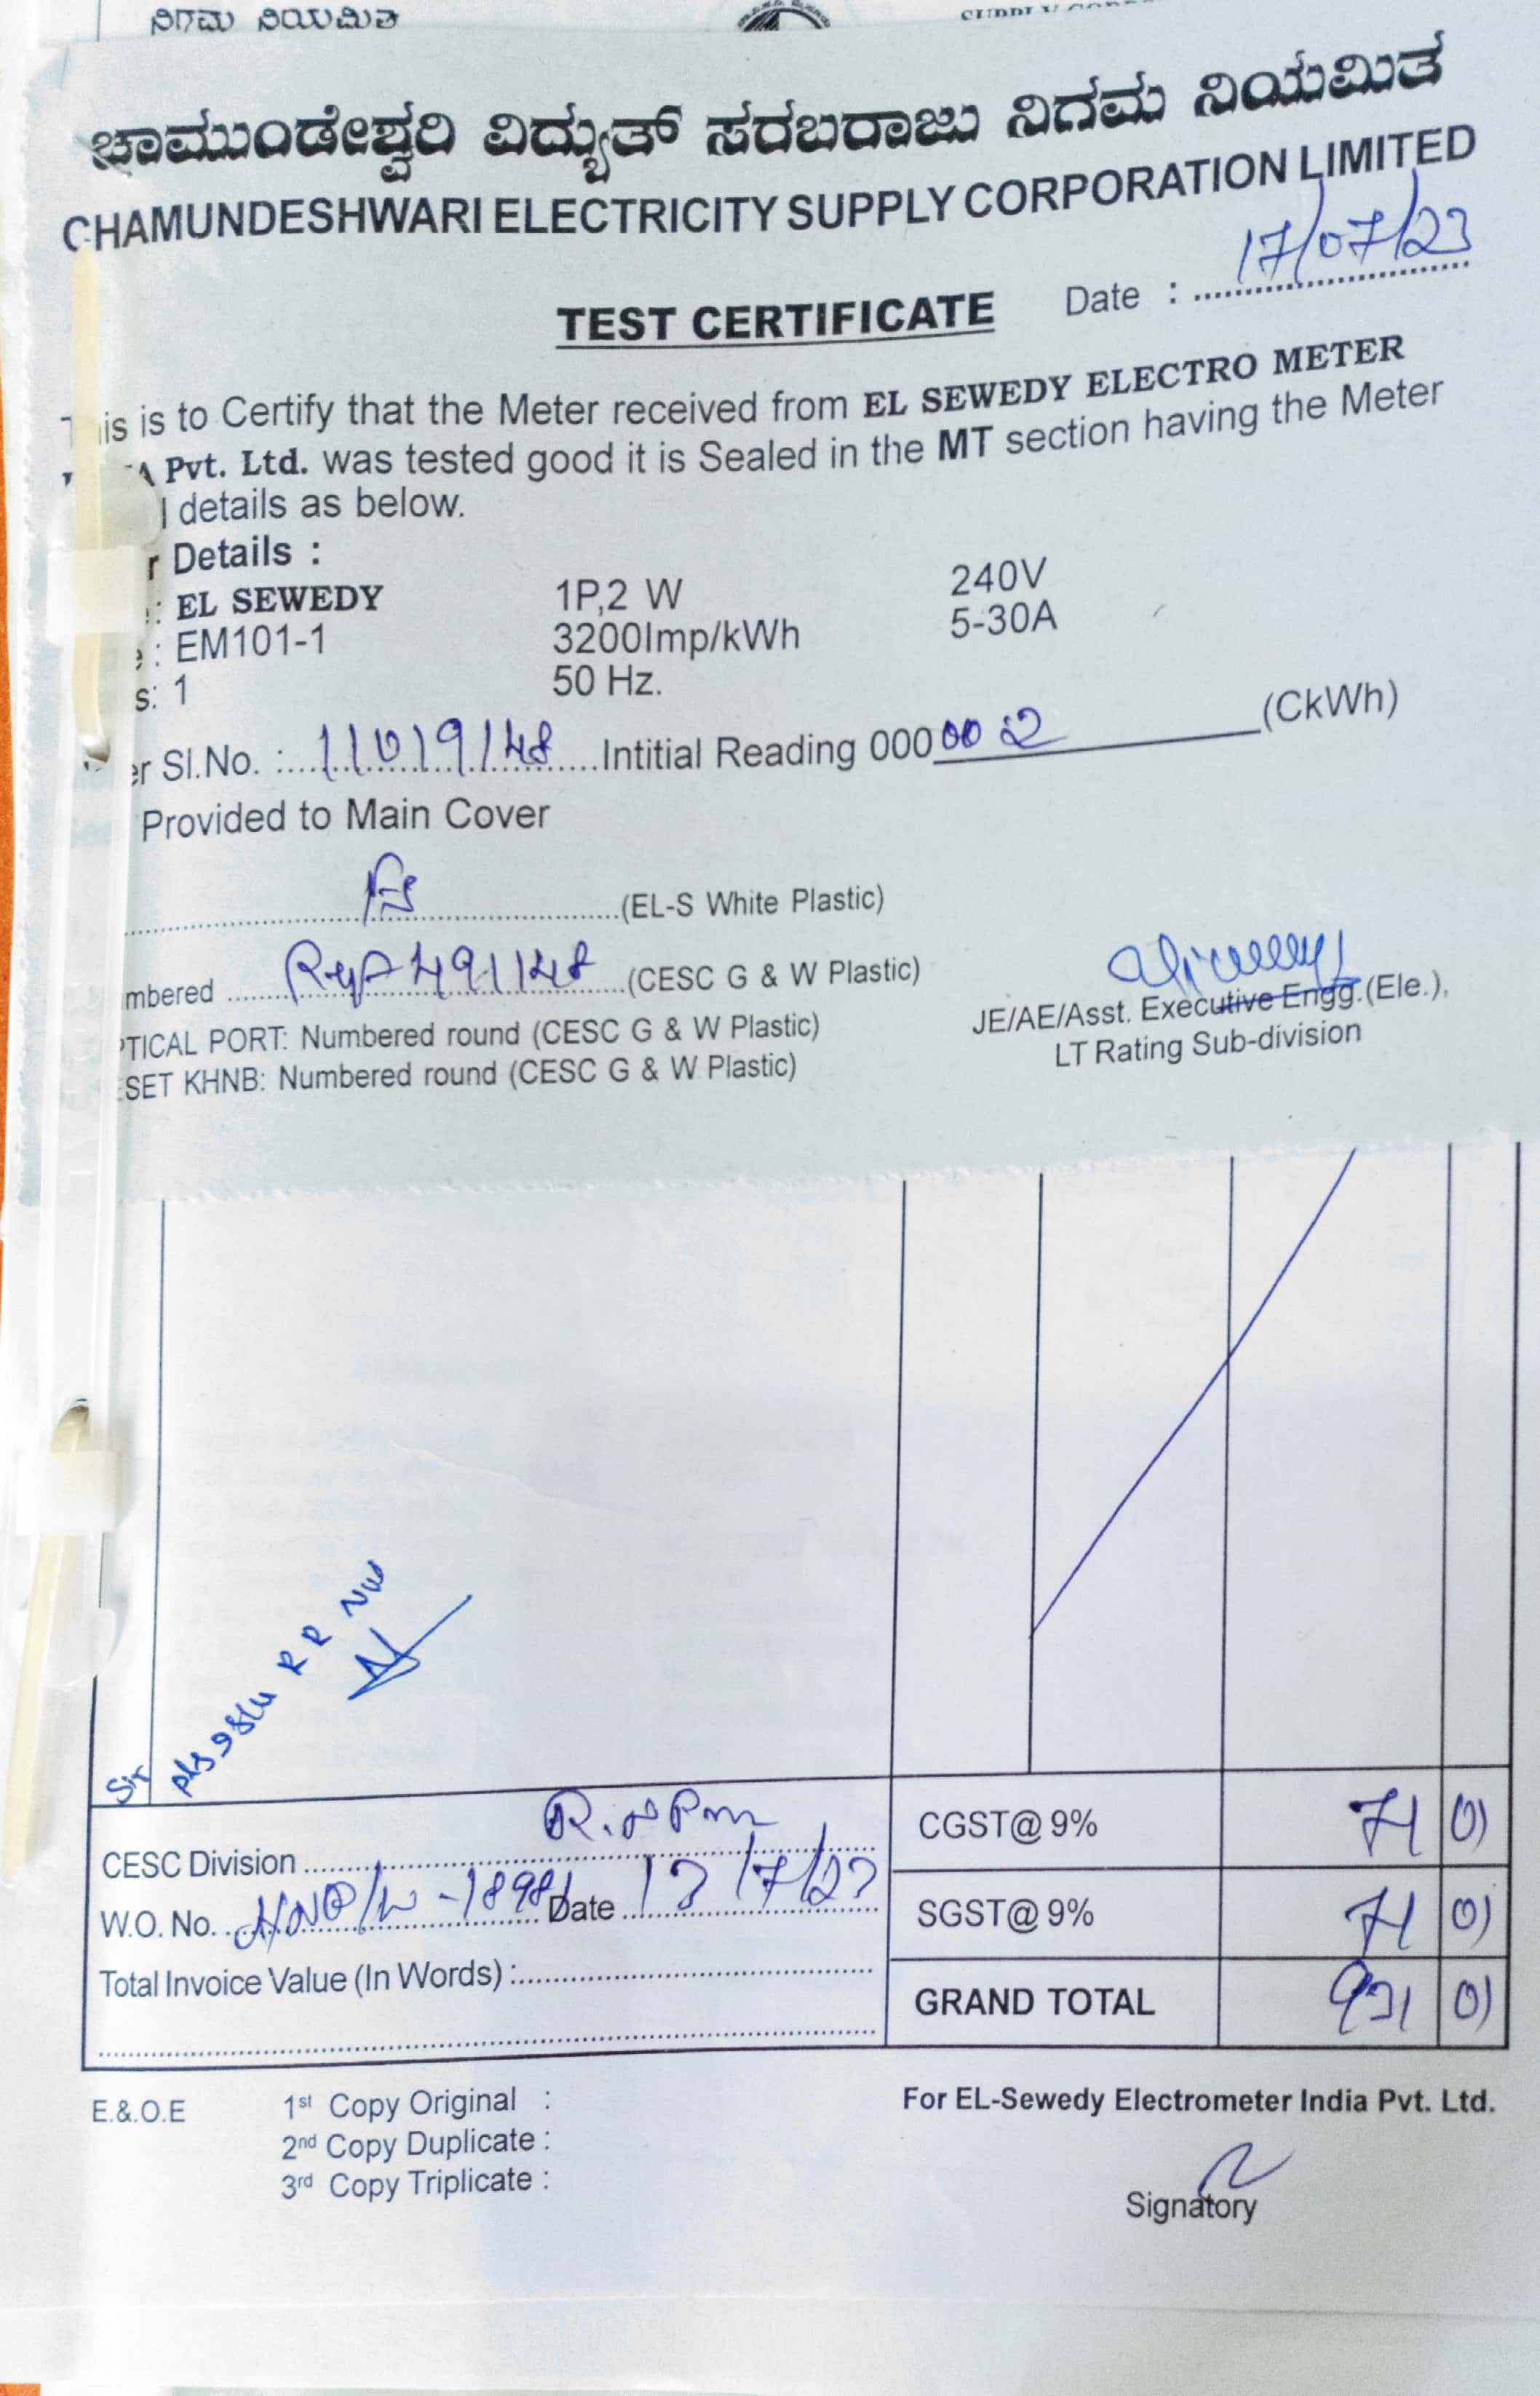 ನಿಗಮ ನಿಯಮಿತ
ಚಾಮುಂಡೇಶ್ವರಿ ವಿದ್ಯುತ್ ಸರಬರಾಜು ನಿಗಮ ನಿಯಮಿತ
CHAMUNDESHWARI ELECTRICITY SUPPLY CORPORATION LIMITED
TEST CERTIFICATE Date : 17/07/23
is is to Certify that the Meter received from EL SEWEDY ELECTRO METER
A Pvt. Ltd. was tested good it is Sealed in the MT section having the Meter
l details as below.
r Details :
: EL SEWEDY 1P,2 W 240V
e : EM101-1 3200Imp/kWh 5-30A
s: 1 50 Hz.
er Sl.No. : 11019148 Intitial Reading 000 00 2 (CkWh)
Provided to Main Cover
(EL-S White Plastic)
mbered 491148 (CESC G & W Plastic)
JE/AE/Asst. Executive Engg.(Ele.),
PTICAL PORT: Numbered round (CESC G & W Plastic)
LT Rating Sub-division
SET KHNB: Numbered round (CESC G & W Plastic)
Sir
R R
CESC Division
CGST@ 9% 71 01
W.O. No. Date 13/7/23
SGST@ 9% 71 01
Total Invoice Value (In Words) :
GRAND TOTAL 931 01
E.&.O.E 1st Copy Original :
2nd Copy Duplicate :
3rd Copy Triplicate :
For EL-Sewedy Electrometer India Pvt. Ltd.
Signatory